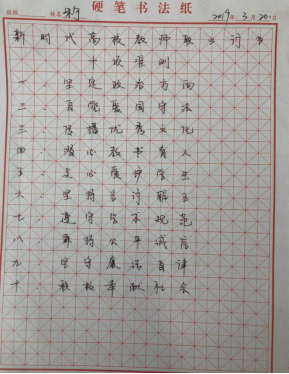 硬笔书法纸
班级 姓名 2019年3月20日
新时代高校教师职业行为
十项准则
一:坚定政治方向
二:自觉爱国守法
三:传播优秀文化
四:潜心教书育人
五:关心爱护学生
六:坚持言行雅正
七:遵守学术规范
八:秉持公平诚信
九:坚守廉洁自律
十:积极奉献社会